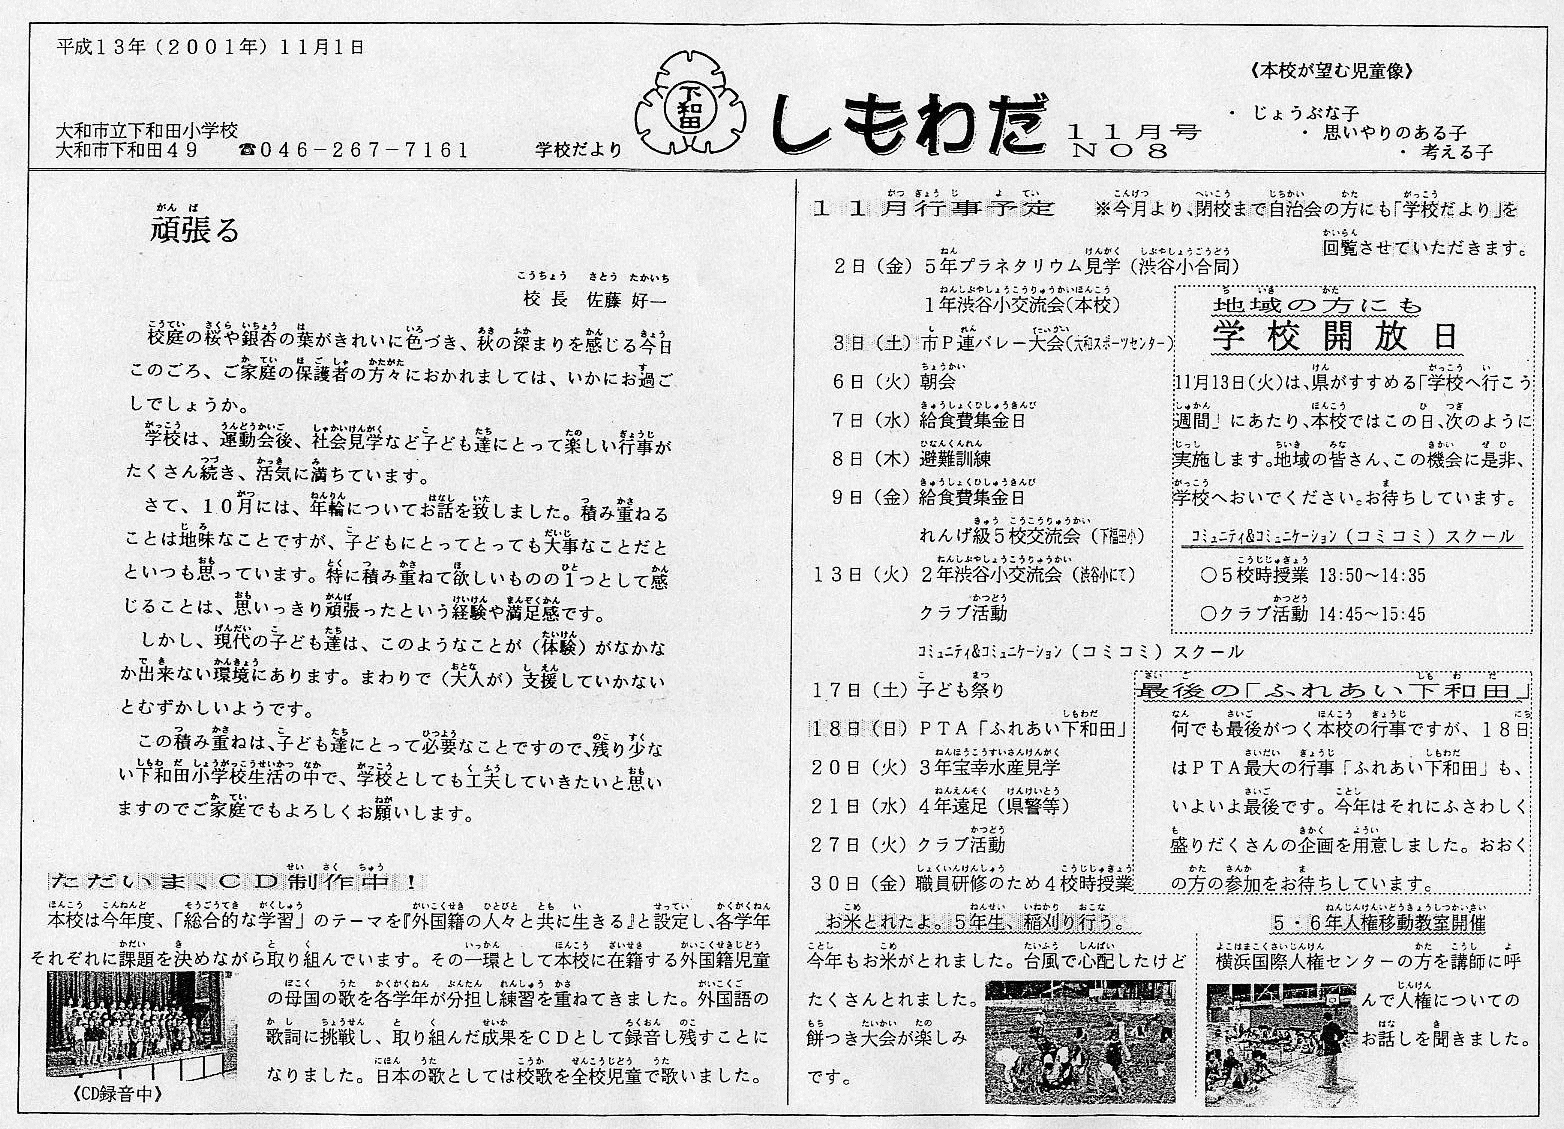 平成13年(2001年)11月1日
大和市立下和田小学校
大和市下和田49 ☎046-267-7161
学校だより
下和田
しもわだ
11月号
NO8
《本校が望む児童像》
・じょうぶな子
・思いやりのある子
・考える子
頑張る
校長 佐藤 好一
校庭の桜や銀杏の葉がきれいに色づき、秋の深まりを感じる今日
このごろ、ご家庭の保護者の方々におかれましては、いかにお過ご
しでしょうか。
学校は、運動会後、社会見学など子ども達にとって楽しい行事が
たくさん続き、活気に満ちています。
さて、10月には、年輪についてお話を致しました。積み重ねる
ことは地味なことですが、子どもにとってとっても大事なことだと
いつも思っています。特に積み重ねて欲しいものの1つとして感
じることは、思いっきり頑張ったという経験や満足感です。
しかし、現代の子ども達は、このようなことが(体験)がなかな
か出来ない環境にあります。まわりで(大人が)支援していかない
とむずかしいようです。
この積み重ねは、子ども達にとって必要なことですので、残り少な
い下和田小学校生活の中で、学校としても工夫していきたいと思い
ますのでご家庭でもよろしくお願いします。
ただいま、CD制作中!
本校は今年度、「総合的な学習」のテーマを『外国籍の人々と共に生きる』と設定し、各学年
それぞれに課題を決めながら取り組んでいます。その一環として本校に在籍する外国籍児童
の母国の歌を各学年が分担し練習を重ねてきました。外国語の
歌詞に挑戦し、取り組んだ成果をCDとして録音し残すことに
なりました。日本の歌としては校歌を全校児童で歌いました。
《CD録音中》
11月行事予定
※今月より、閉校まで自治会の方にも「学校だより」を
回覧させていただきます。
2日(金)5年プラネタリウム見学(渋谷小合同)
1年渋谷小交流会(本校)
3日(土)市P連バレー大会(大和スポーツセンター)
6日(火)朝会
7日(水)給食費集金日
8日(木)避難訓練
9日(金)給食費集金日
れんげ級5校交流会(下福田小)
13日(火)2年渋谷小交流会(渋谷小にて)
クラブ活動
コミュニティ&コミュニケーション(コミコミ)スクール
17日(土)子ども祭り
18日(日)PTA「ふれあい下和田」
20日(火)3年宝幸水産見学
21日(水)4年遠足(県警等)
27日(火)クラブ活動
30日(金)職員研修のため4校時授業
地域の方にも
学校開放日
11月13日(火)は、県がすすめる「学校へ行こう
週間」にあたり、本校ではこの日、次のように
実施します。地域の皆さん、この機会に是非、
学校へおいでください。お待ちしています。
コミュニティ&コミュニケーション(コミコミ)スクール
○5校時授業 13:50~14:35
○クラブ活動 14:45~15:45
最後の「ふれあい下和田」
何でも最後がつく本校の行事ですが、18日
はPTA最大の行事「ふれあい下和田」も、
いよいよ最後です。今年はそれにふさわしく
盛りだくさんの企画を用意しました。おおく
の方の参加をお待ちしています。
お米とれたよ。5年生、稲刈り行う。
今年もお米がとれました。台風で心配したけど
たくさんとれました。
餅つき大会が楽しみ
です。
5・6年人権移動教室開催
横浜国際人権センターの方を講師に呼
んで人権についての
お話しを聞きました。